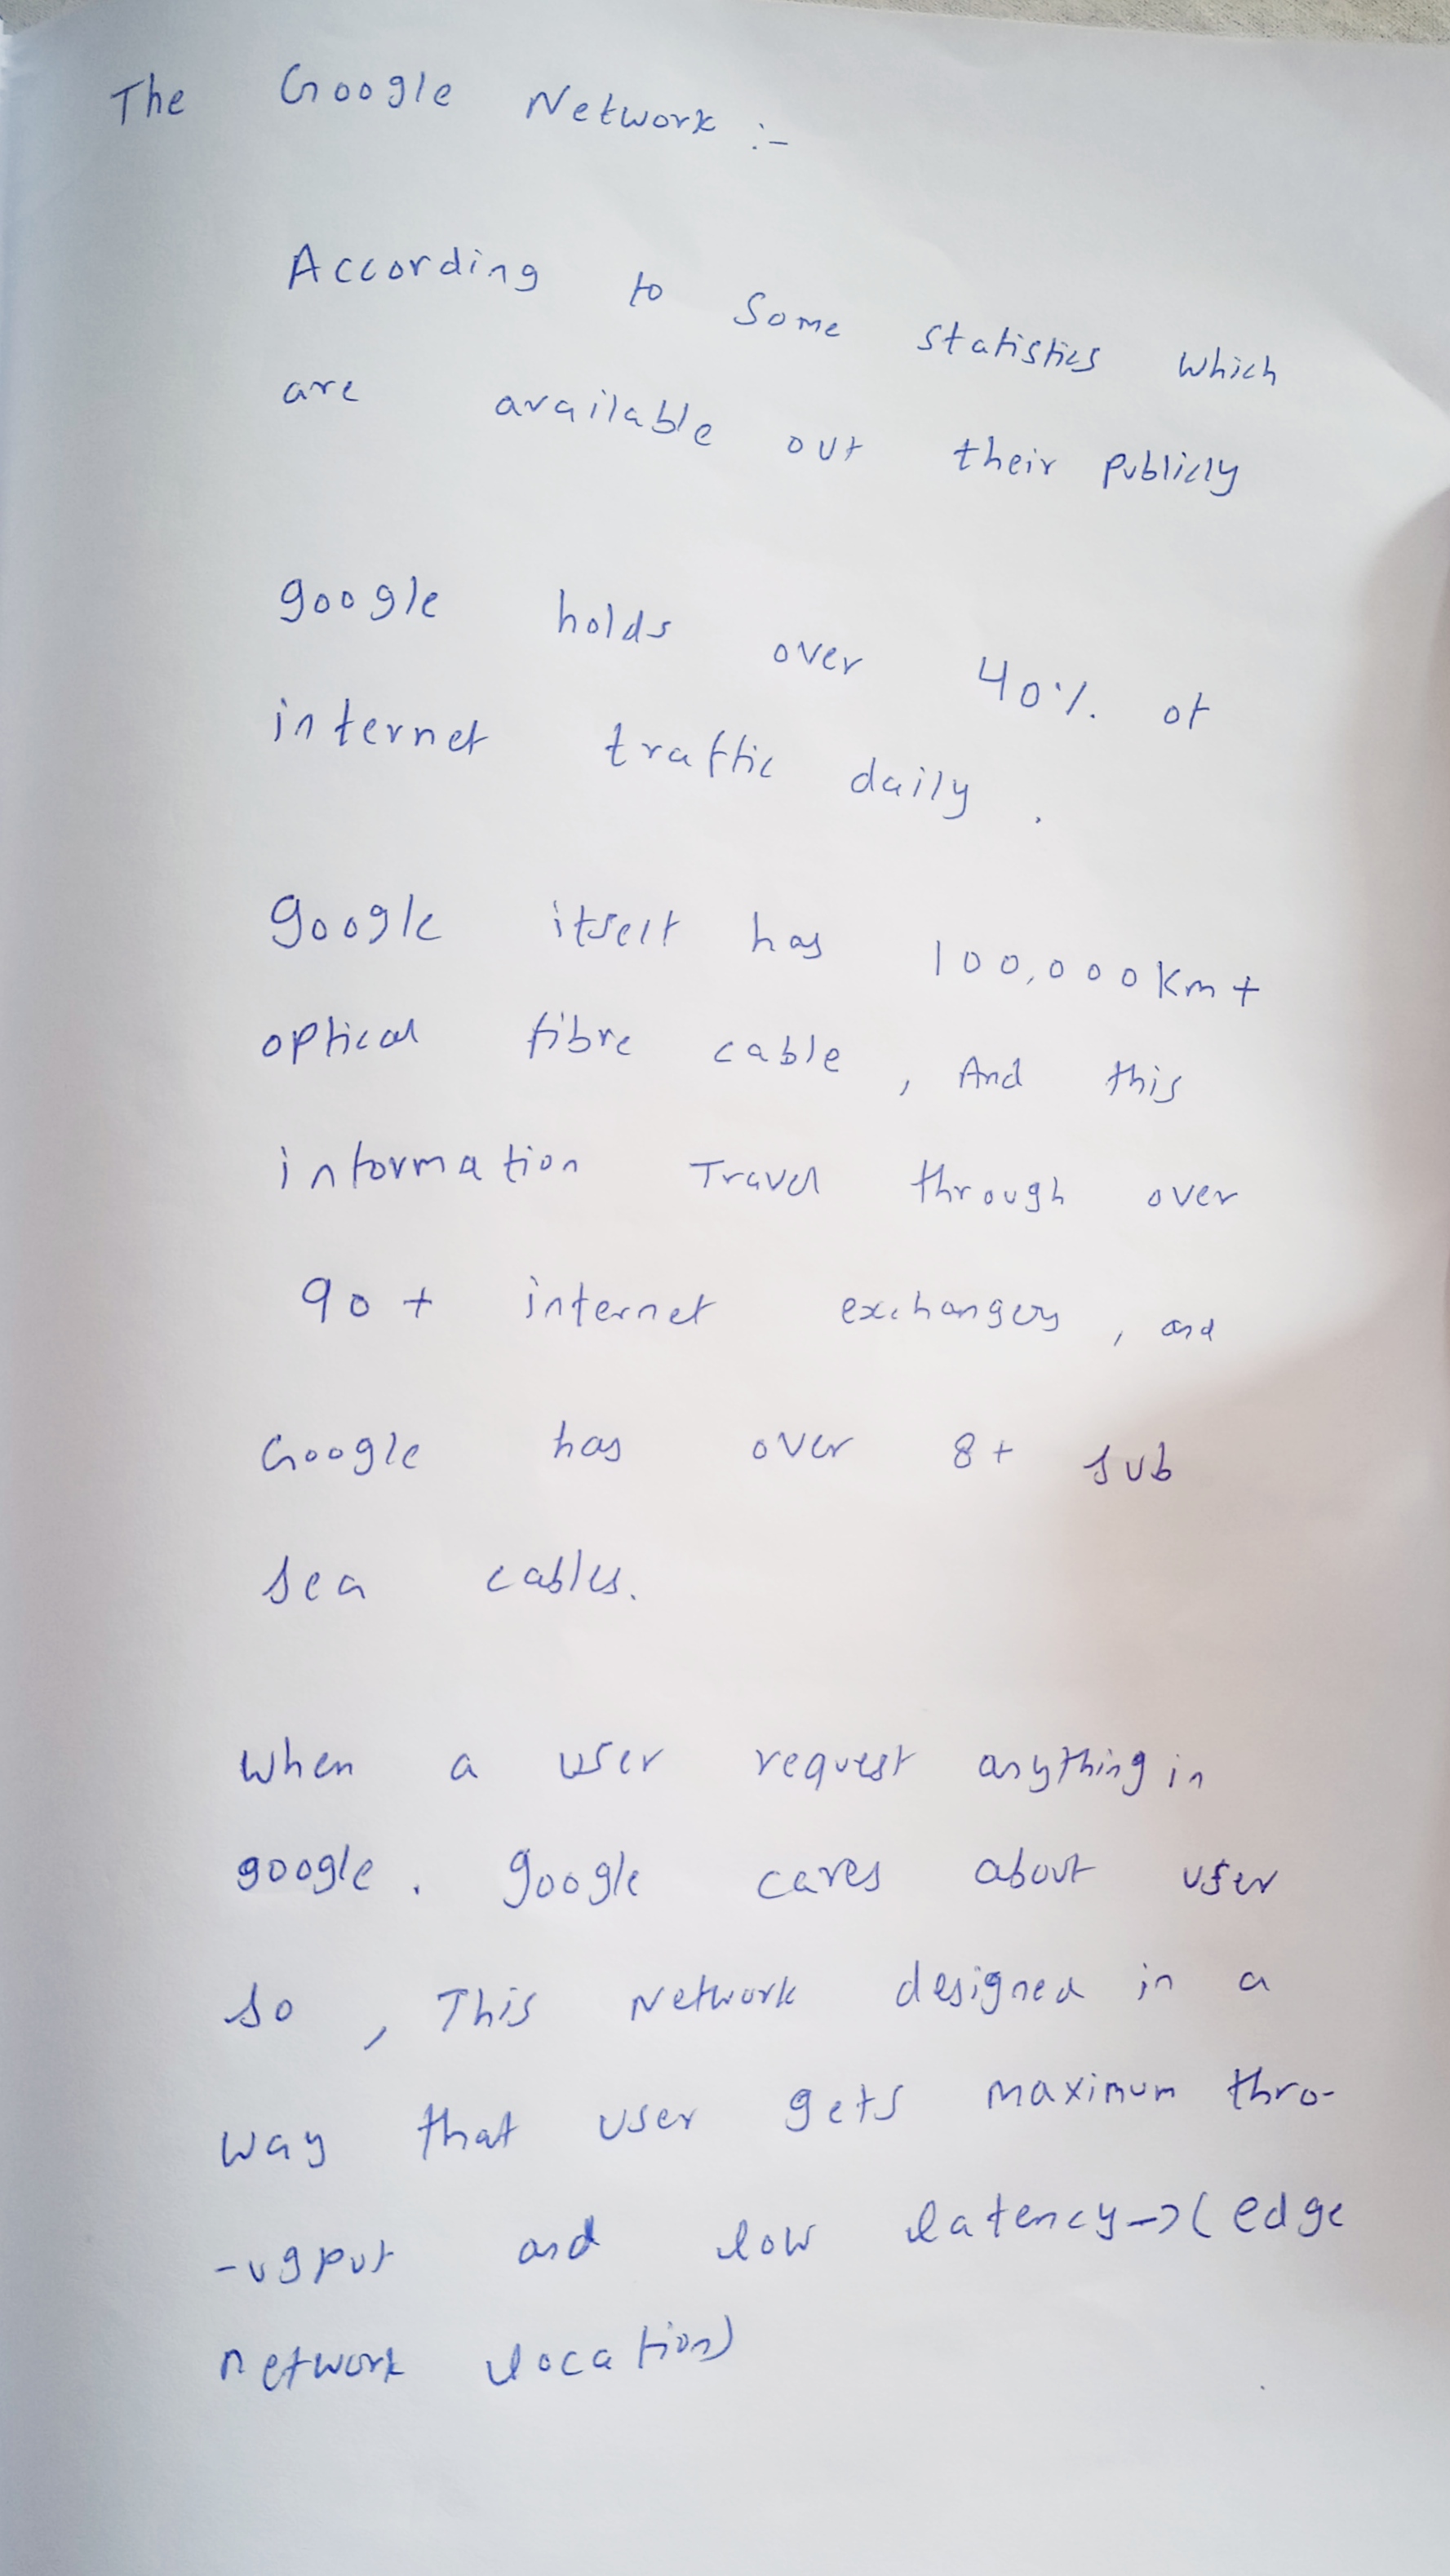 The Google Network :-
According to Some statistics which
are available out their publicly
google holds over 40% of
internet traffic daily .
google itself has 100,000 Km +
optical fibre cable , And this
information Travel through over
90 + internet exchanges , and
Google has over 8+ sub
sea cables.
When a user request anything in
google . google cares about user
so , This Network designed in a
way that user gets maximum thro-
-ugput and low latency → ( edge
network location)